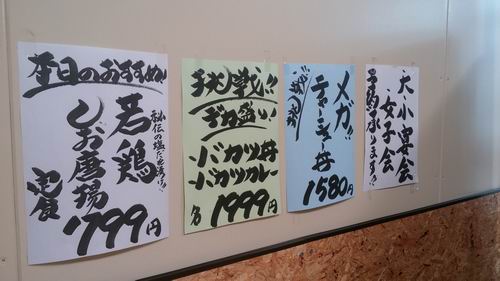 本日のおすすめ!
若鶏
秘伝の塩だれ漬け!!
しお唐揚
定食
799円
挑戦!!
ざわ盛い!
バカツ丼
バカツカレー
各1999円
メガ!!
チャーシュー丼
1580円
大小宴会
女子会
承ります!!